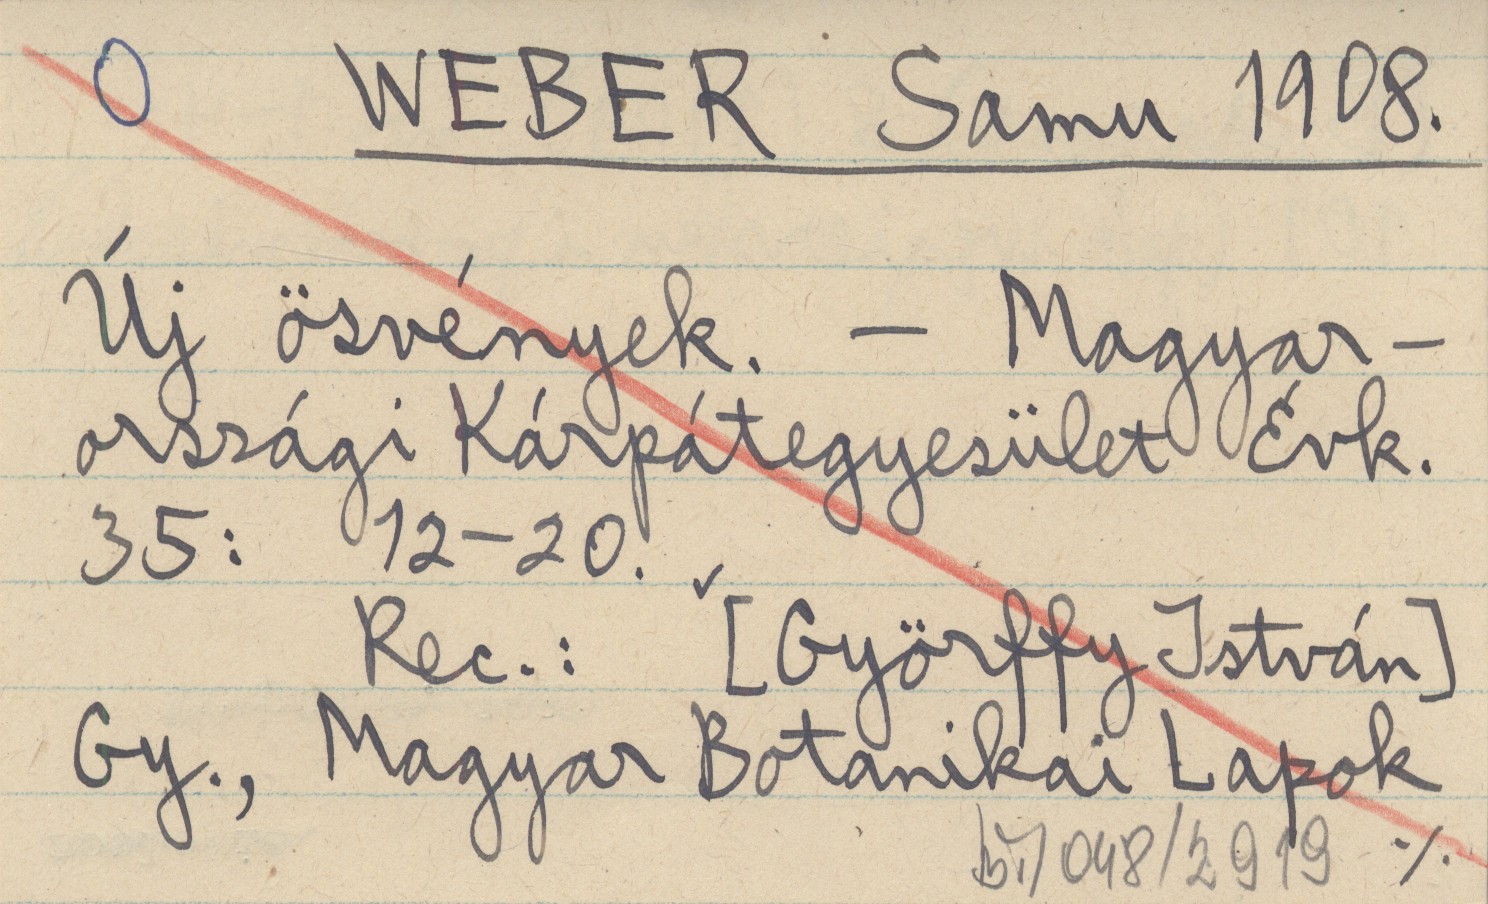 O WEBER Samu 1908.
Új ösvények. – Magyar-
országi Kárpátegyesület Évk.
35: 12–20.
Rec.: ✓[Györffy István]
Gy., Magyar Botanikai Lapok
048/2919 ·/.